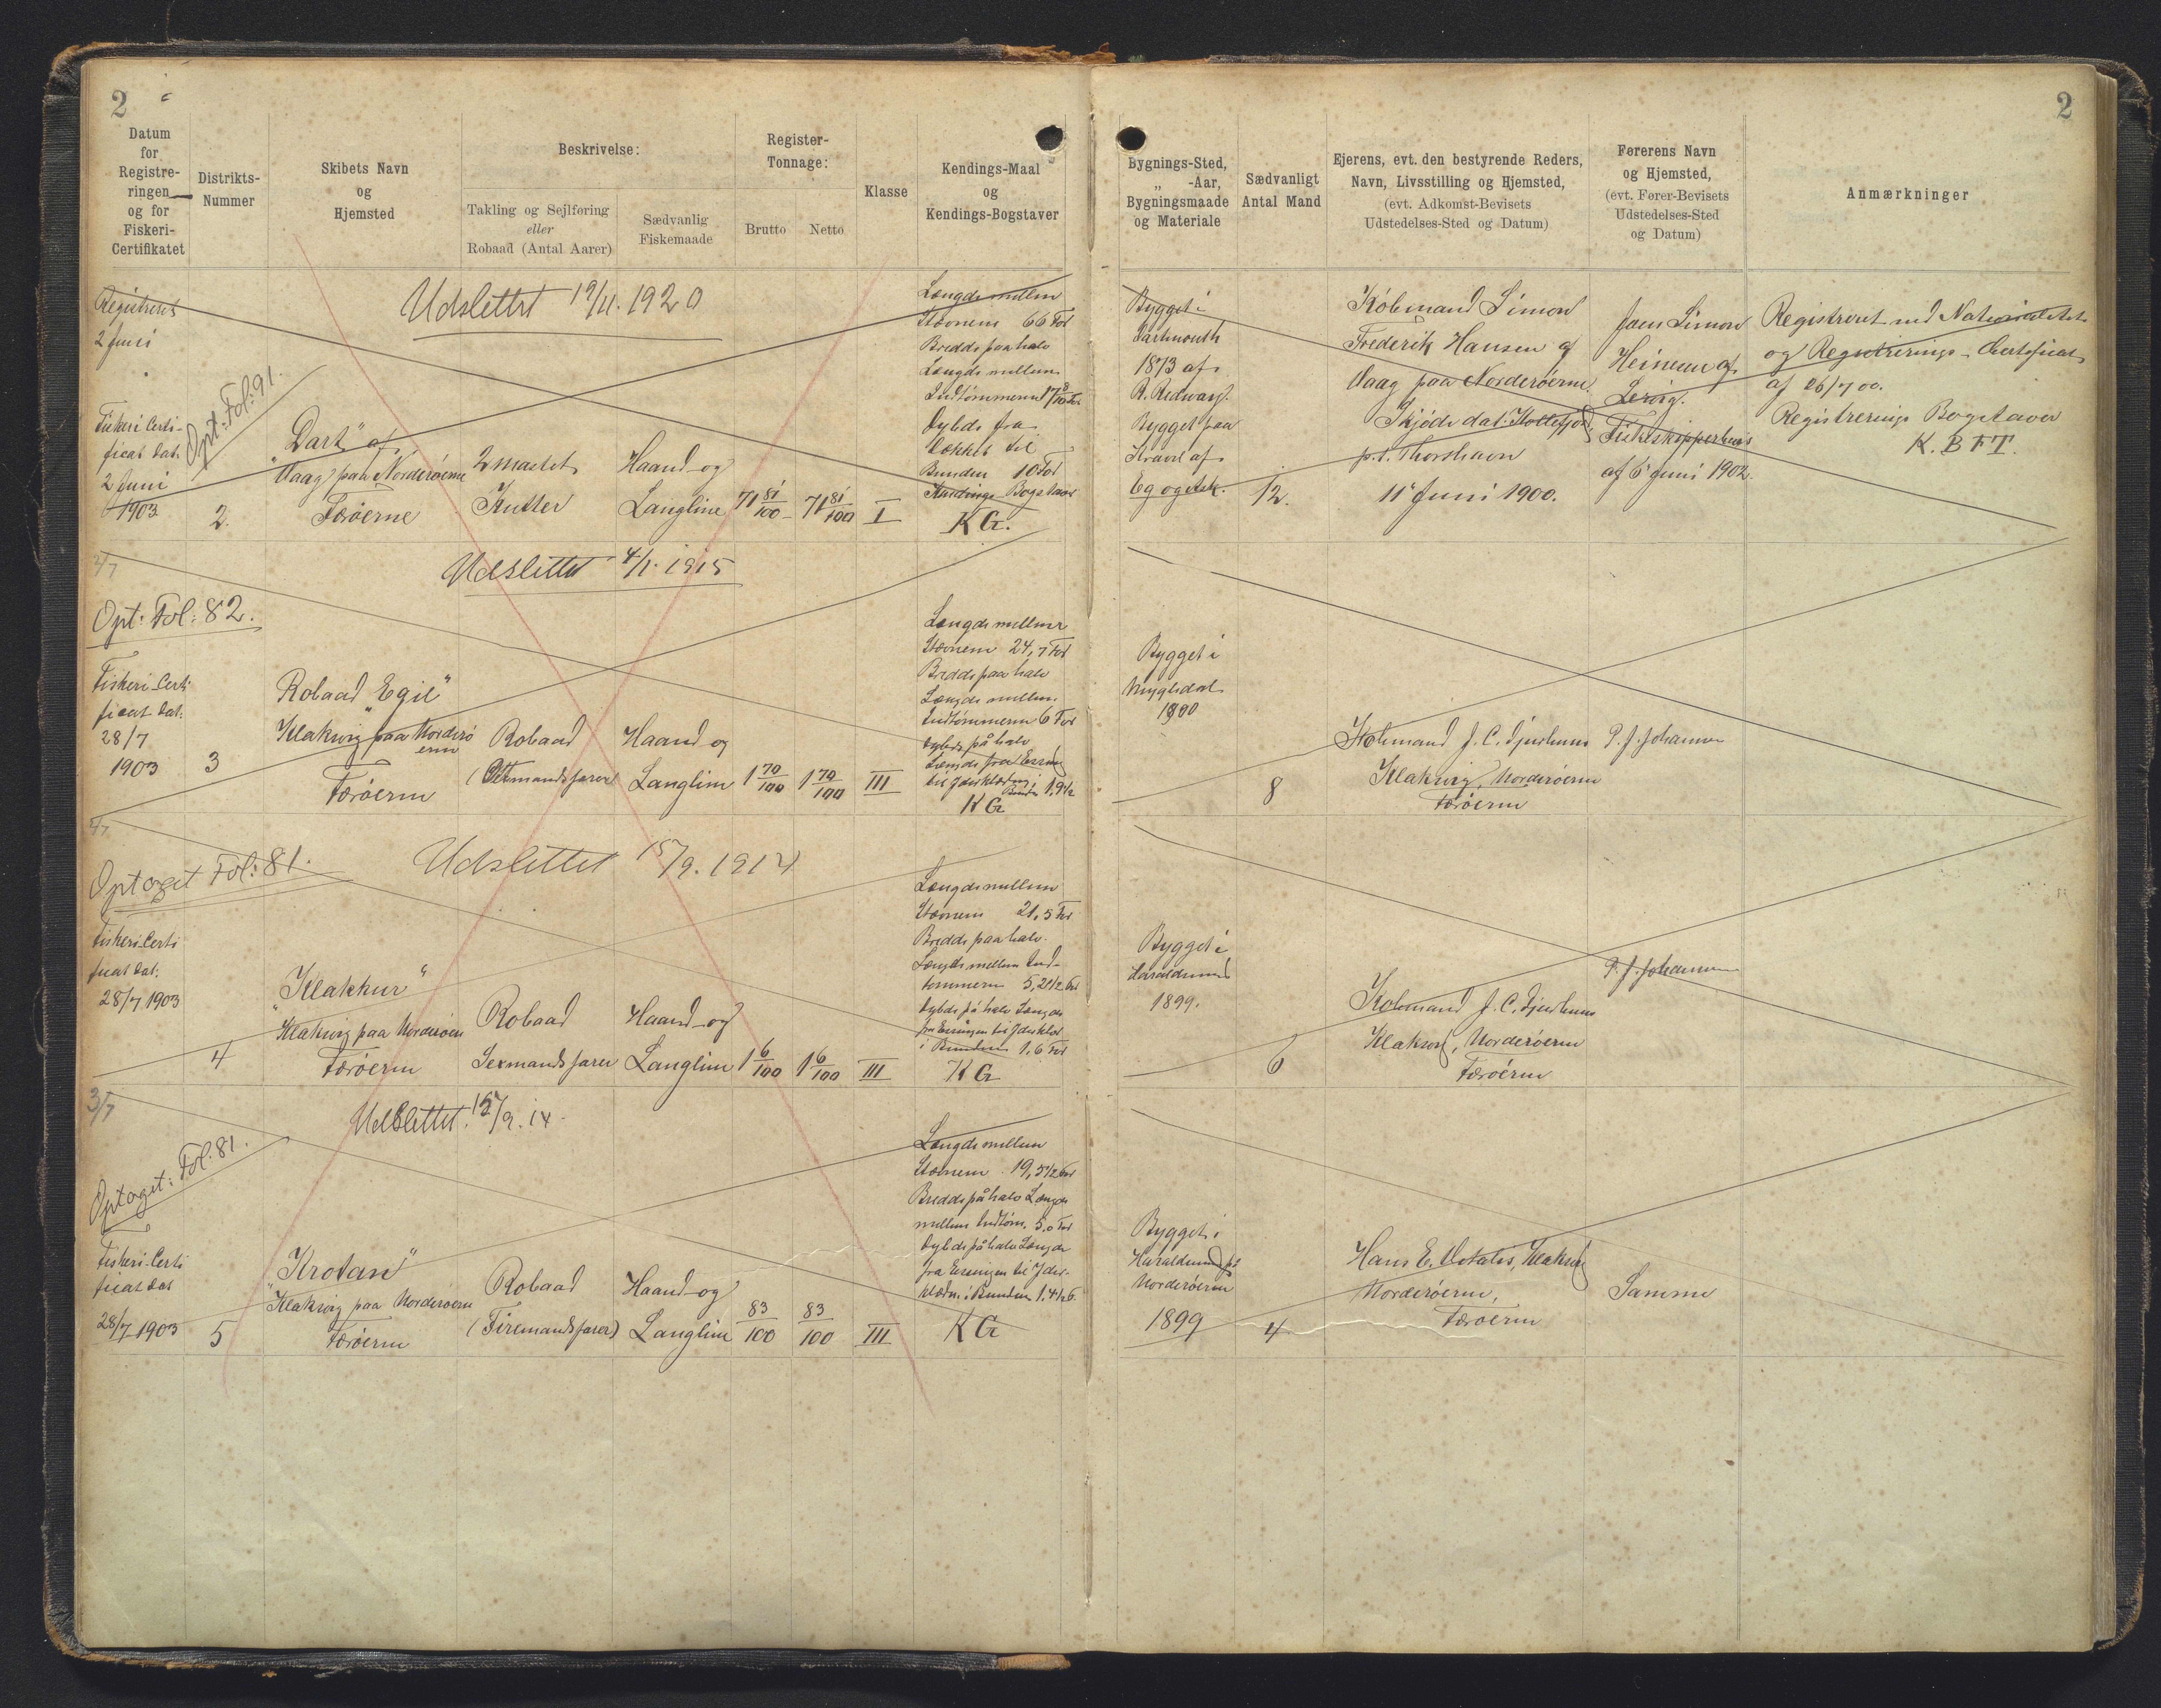 2
2
Datum
for
Registre-
ringen
og for
Fiskeri-
Certifikatet
Distrikts-
Nummer
Skibets Navn
og
Hjemsted
Beskrivelse:
Takling og Sejlføring
eller
Robaad (Antal Aarer)
Sædvanlig
Fiskemaade
Register-
Tonnage:
Brutto
Netto
Klasse
Kendings-Maal
og
Kendings-Bogstaver
Bygnings-Sted,
„ -Aar,
Bygningsmaade
og Materiale
Sædvanligt
Antal Mand
Ejerens, evt. den bestyrende Reders,
Navn, Livsstilling og Hjemsted,
(evt. Adkomst-Bevisets
Udstedelses-Sted og Datum)
Førerens Navn
og Hjemsted,
(evt. Fører-Bevisets
Udstedelses-Sted
og Datum)
Anmærkninger
Registreret
2 Juni
Opt: Fol: 91.
Fiskeri Certi-
ficat dat.
2 Juni
1903
2.
Udslettet 19/11. 1920
"Dart" af
Vaag paa Norderöerne
Færöerne
2 mastet
Kutter
Haand og
Langline
71 81/100
71 81/100
I
Længde mellem
Stævnene 66 Fod
Bredde paa halv
Længde mellem
Indtømmerne 17 8/10 Fod
Dybde fra
Dækket til
Bunden 10 Fod
Kendings Bogstaver
KG.
Bygget i
Dartmouth
1873 af
R. Redway.
Bygget paa
Kravel af
Eg og Elsk.
12.
Købmand Simon
Frederik Hansen af
Vaag paa Norderöerne
Skjöde dat. Kollefjord
p.t. Thorshavn
11' Juni 1900.
Joen Simon
Heinesen af
Lervig.
Fiskeskipperbevis
af 6' Juni 1902.
Registreret med Nationalitets
og Registrerings-Certificat
af 26/7 00.
Registrerings Bogstaver
K. B F T.
4/7
Opt: Fol: 82.
Fiskeri Certi-
ficat dat.
28/7
1903
3
Udslettet 4/1. 1915
Robaad "Egil"
Klaksvig paa Norderö
erne
Færöerne
Robaad
(Ottemandsfarer)
Haand og
Langline
1 70/100
1 70/100
III
Længde mellem
Stævnene 24,7 Fod
Bredde paa halv
Længde mellem
Indtømmerne 6 Fod
Dybde på halv
Længde fra Esring
til Yderklædning i
Bunden 1.9 1/2
KG
Bygget i
Mygledal
1900
8
Købmand J. C. Djurhuus
Klaksvig, Norderöerne
Færöerne
P. J. Johannesen
4/7
Optaget Fol: 81.
Fiskeri Certi
ficat dat.
28/7 1903
4
Udslettet 15/9. 1914
"Klakkur"
Klaksvig paa Norderöerne
Færöerne
Robaad
Sexmandsfarer
Haand og
Langline
1 6/100
1 6/100
III
Længde mellem
Stævnene 21,5 Fod
Bredde paa halv
Længde mellem Ind-
tømmerne 5,2 1/2 Fod
Dybde på halv Længde
fra Esringen til Yderklæd
i Bunden 1,6 Fod
KG
Bygget i
Haraldsund
1899.
6
Købmand J. C. Djurhuus
Klaksvig, Norderöerne
Færöerne
P. J. Johannesen
3/7
Optaget: Fol: 81.
Fiskeri Certi
ficat dat
28/7 1903
5
Udslettet. 15/9. 14.
"Krotan"
Klaksvig paa Norderöerne
Færöerne
Robaad
(Firemandsfarer)
Haand og
Langline
83/100
83/100
III
Længde mellem
Stævnene 19,5 1/2 Fod
Bredde på halv Længde
mellem Indtøm. 5,0 Fod
Dybde på halv Længde
fra Esringen til Yder-
klædn. i Bunden 1.4 1/2 F.
KG
Bygget i
Haraldsund på
Norderöerne
1899
4
Hans E. Klaksvig
Norderöerne,
Færöerne
Samme